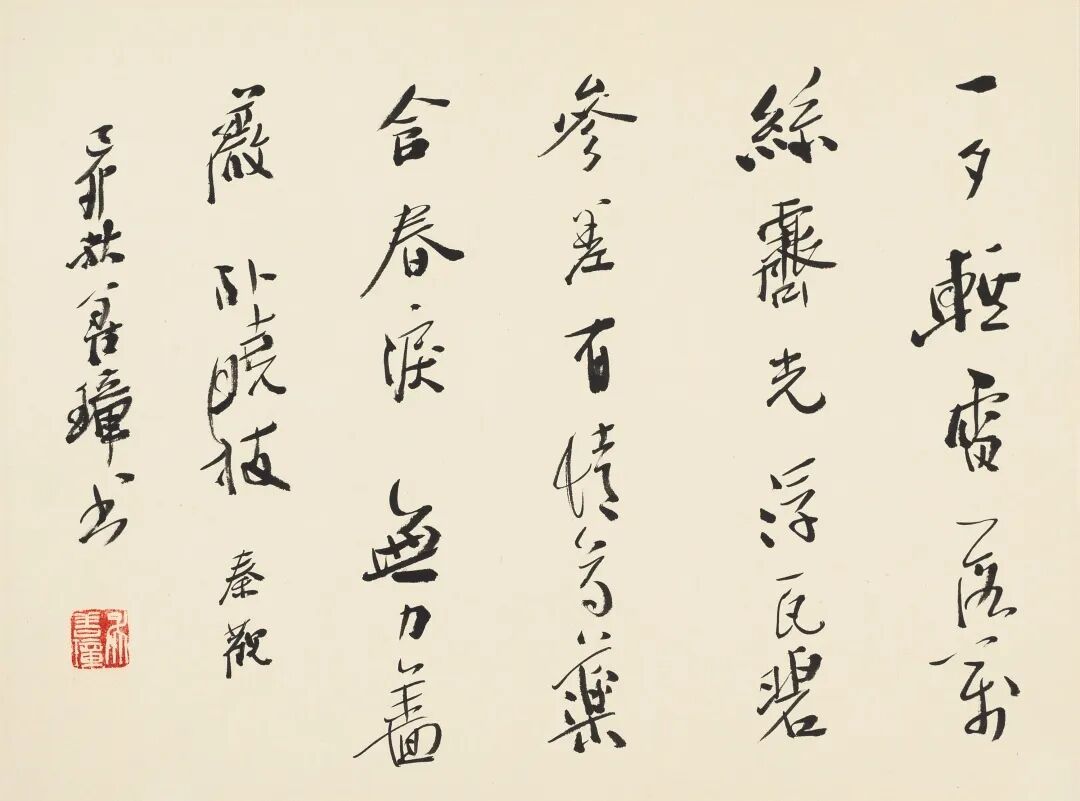 一夕輕雷落萬
絲霽光浮瓦碧
參差有情芍藥
含春淚無力薔
薇卧曉枝 秦觀
己卯秋善璋书
吳善璋